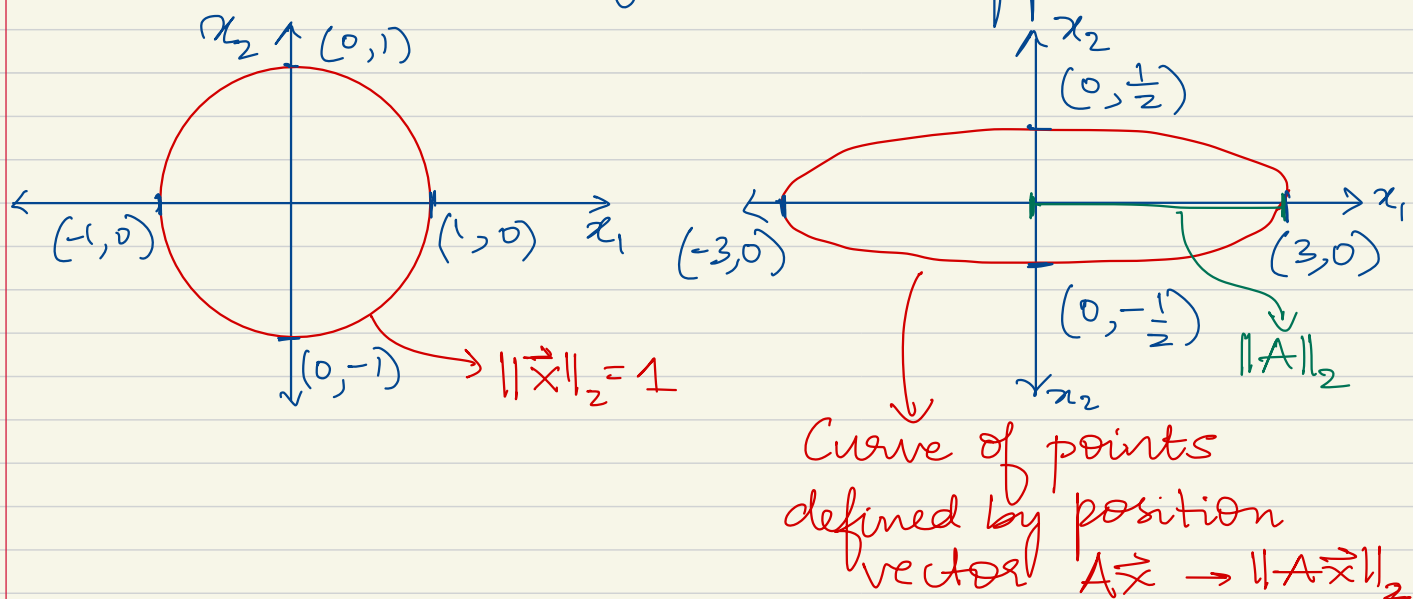 x₂ (0,1)
(-1,0)
(1,0)
x₁
(0,-1)
‖x⃗‖₂ = 1
x₂
(0, 1/2)
x₁
(-3,0)
(3,0)
(0, -1/2)
‖A‖₂
x₂
Curve of points
defined by position
vector Ax⃗ → ‖Ax⃗‖₂